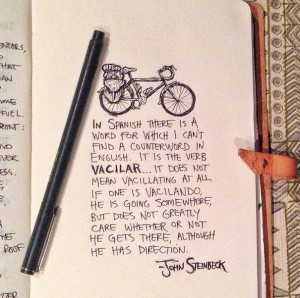 ENTORS,
THAT
FUEL.
IN SPANISH THERE IS A
WORD FOR WHICH I CAN'T
FIND A COUNTERWORD IN
ENGLISH. IT IS THE VERB
VACILAR... IT DOES NOT
MEAN VACILLATING AT ALL
IF ONE IS VACILANDO,
HE IS GOING SOMEWHERE,
BUT DOES NOT GREATLY
CARE WHETHER OR NOT
HE GETS THERE, ALTHOUGH
HE HAS DIRECTION.
-JOHN STEINBECK